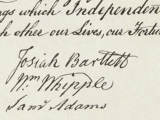 ngs which Independen
h other our Lives, our Fortun
Josiah Bartlett
Wm Whipple
Saml Adams